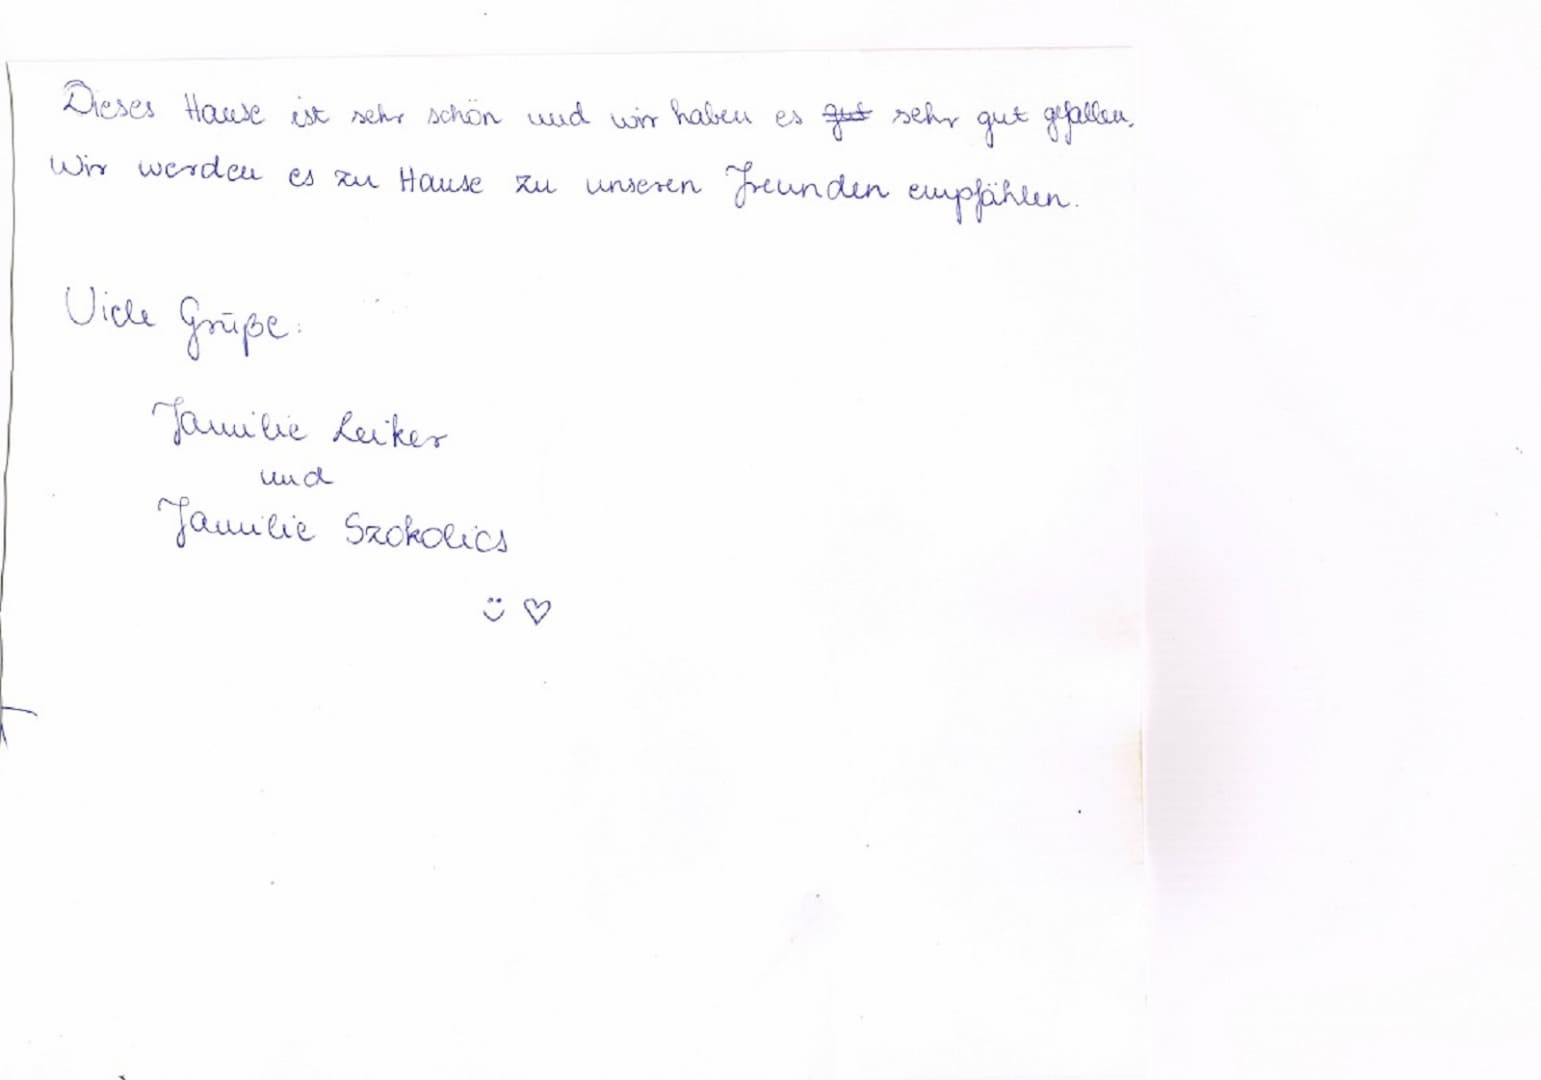 Dieses Hause ist sehr schön und wir haben es gut sehr gut gefallen.
Wir werden es zu Hause zu unseren Freunden empfählen.
Viele Grüße:
Familie Leiker
und
Familie Szokolics